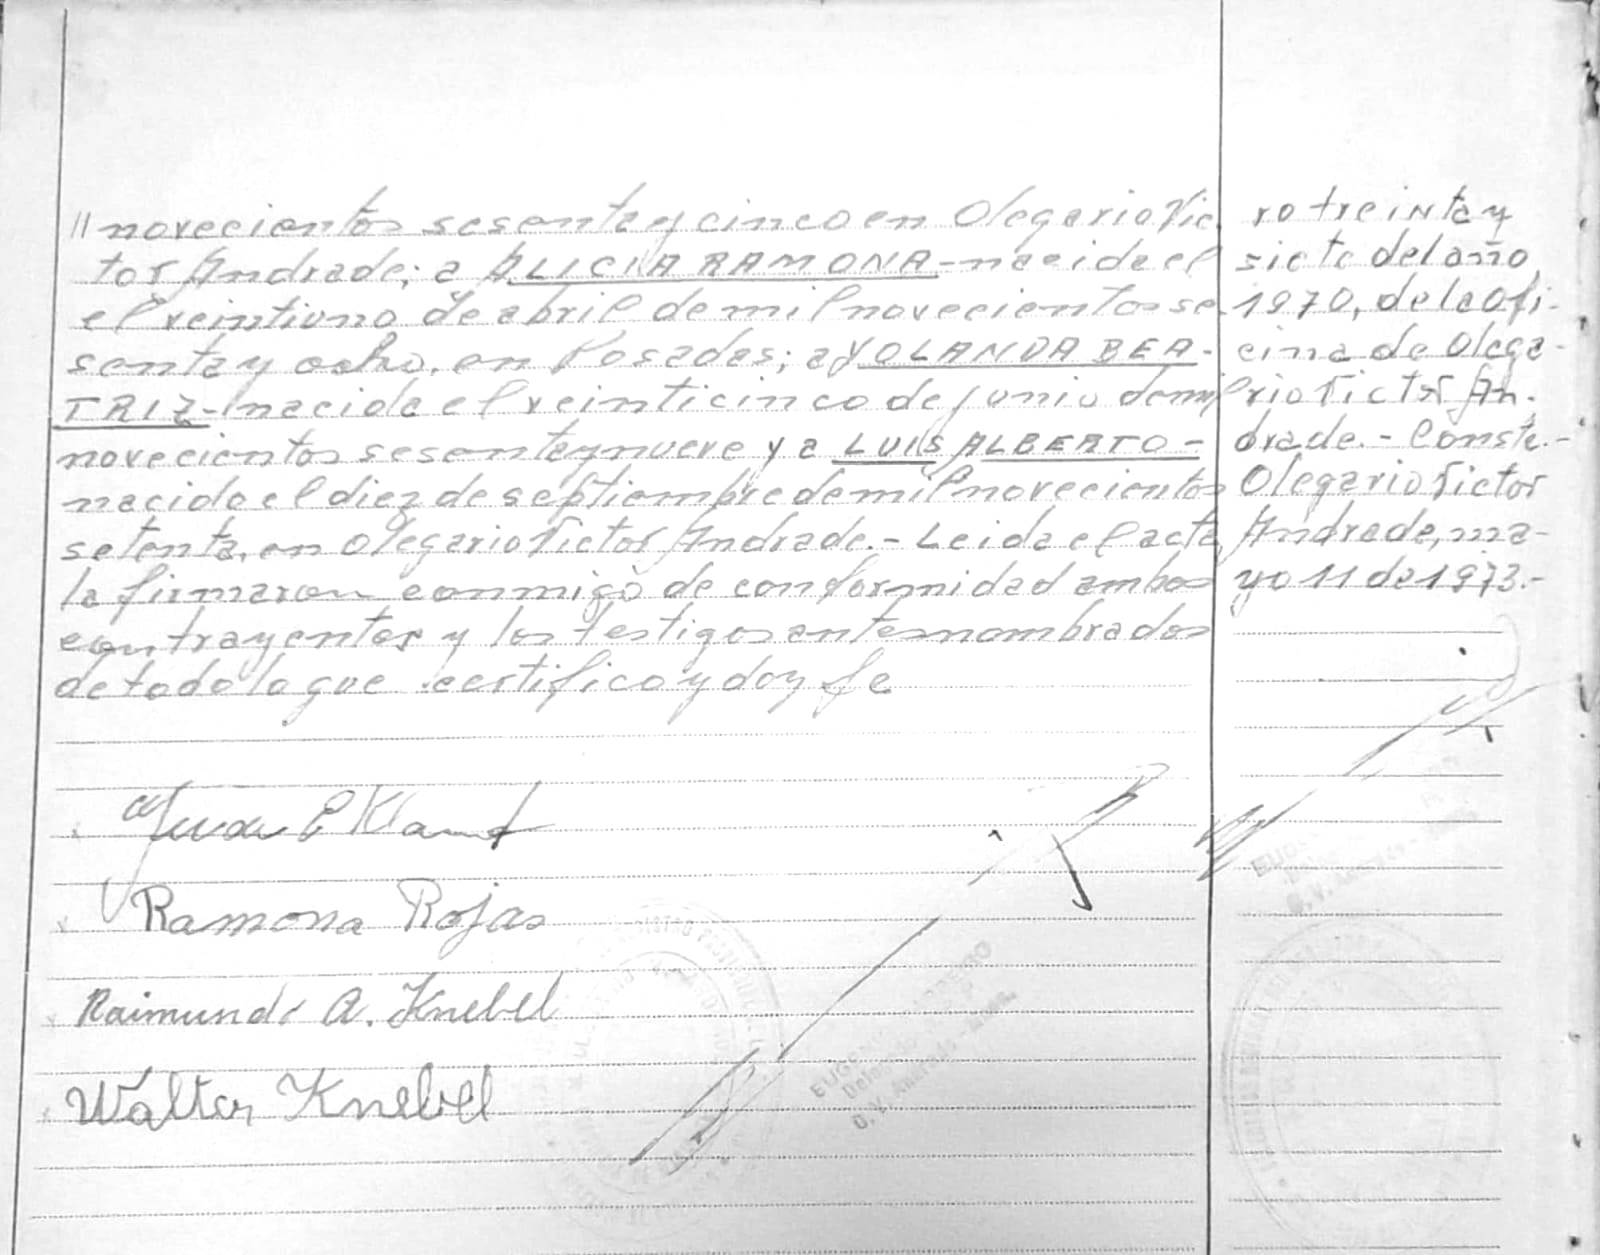 // novecientos sesenta y cinco en Olegario Víc
tor Andrade; a ALICIA RAMONA - nacida el
el veintiuno de abril de mil novecientos se
senta y ocho, en Posadas; a YOLANDA BEA-
TRIZ - nacida el veinticinco de junio de mil
novecientos sesenta y nueve y a LUIS ALBERTO -
nacido el diez de septiembre de mil novecientos
setenta, en Olegario Víctor Andrade. - Leida el acta
la firmaron conmigo de conformidad ambos
contrayentes y los testigos antes nombrados
de todo lo que certifico y doy fe
ro treinta y
siete del año
1970, de la Ofi-
cina de Olega-
rio Victor An-
drade. - Conste. -
Olegario Victor
Andrade, ma-
yo 11 de 1973. -
Ramona Rojas
Raimundo A. Knebel
Walter Knebel
Delegado
O. V. Andrade - Mnes.